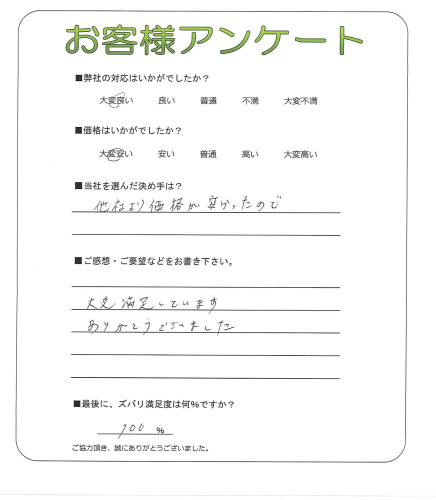 お客様アンケート
■弊社の対応はいかがでしたか？
大変良い 良い 普通 不満 大変不満
■価格はいかがでしたか？
大変安い 安い 普通 高い 大変高い
■当社を選んだ決め手は？
他社より価格が安かったので
■ご感想・ご要望などをお書き下さい。
大変満足しています
ありがとうございました
■最後に、ズバリ満足度は何％ですか？
100 %
ご協力頂き、誠にありがとうございました。